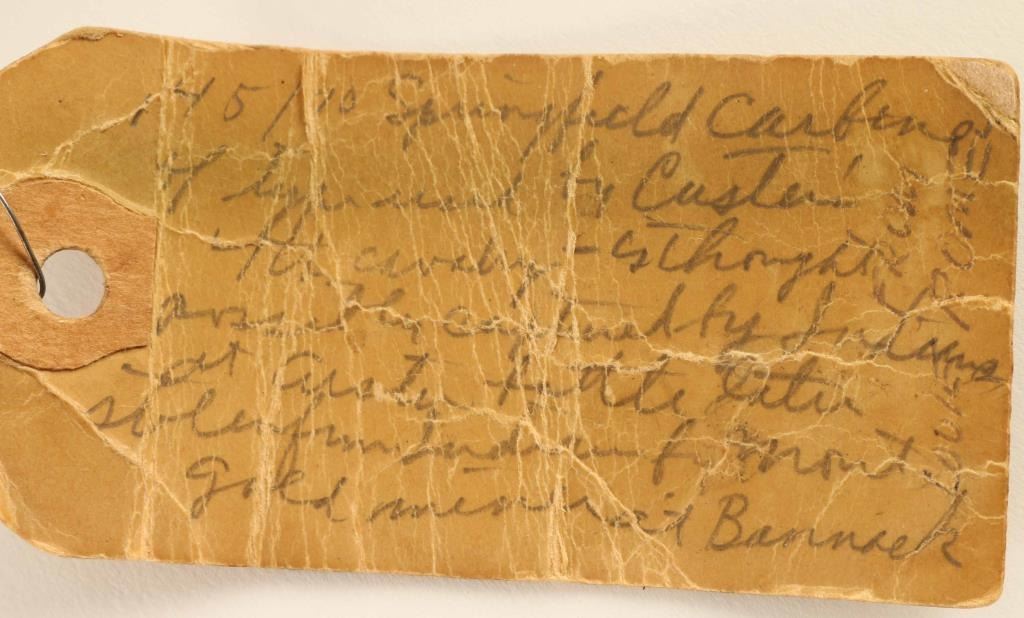 45/70 Springfield Carbine
of type used by Custer's
7th cavalry - is thought
possibly captured by Indians
at Custer battle later
stolen from Indian by Mont
gold miner at Bannack